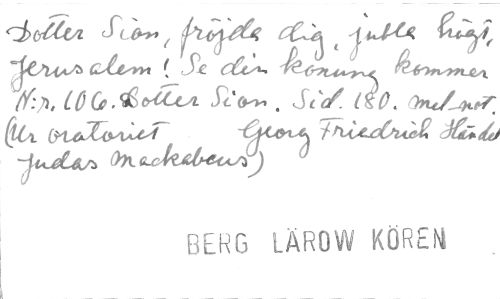 Dotter Sion, fröjda dig, jubla högt,
Jerusalem! Se din konung kommer
N:r. 106. Dotter Sion. Sid. 180. mel. not.
(Ur oratoriet Georg Friedrich Händel
Judas Mackabeus)
BERG LÄROW KÖREN